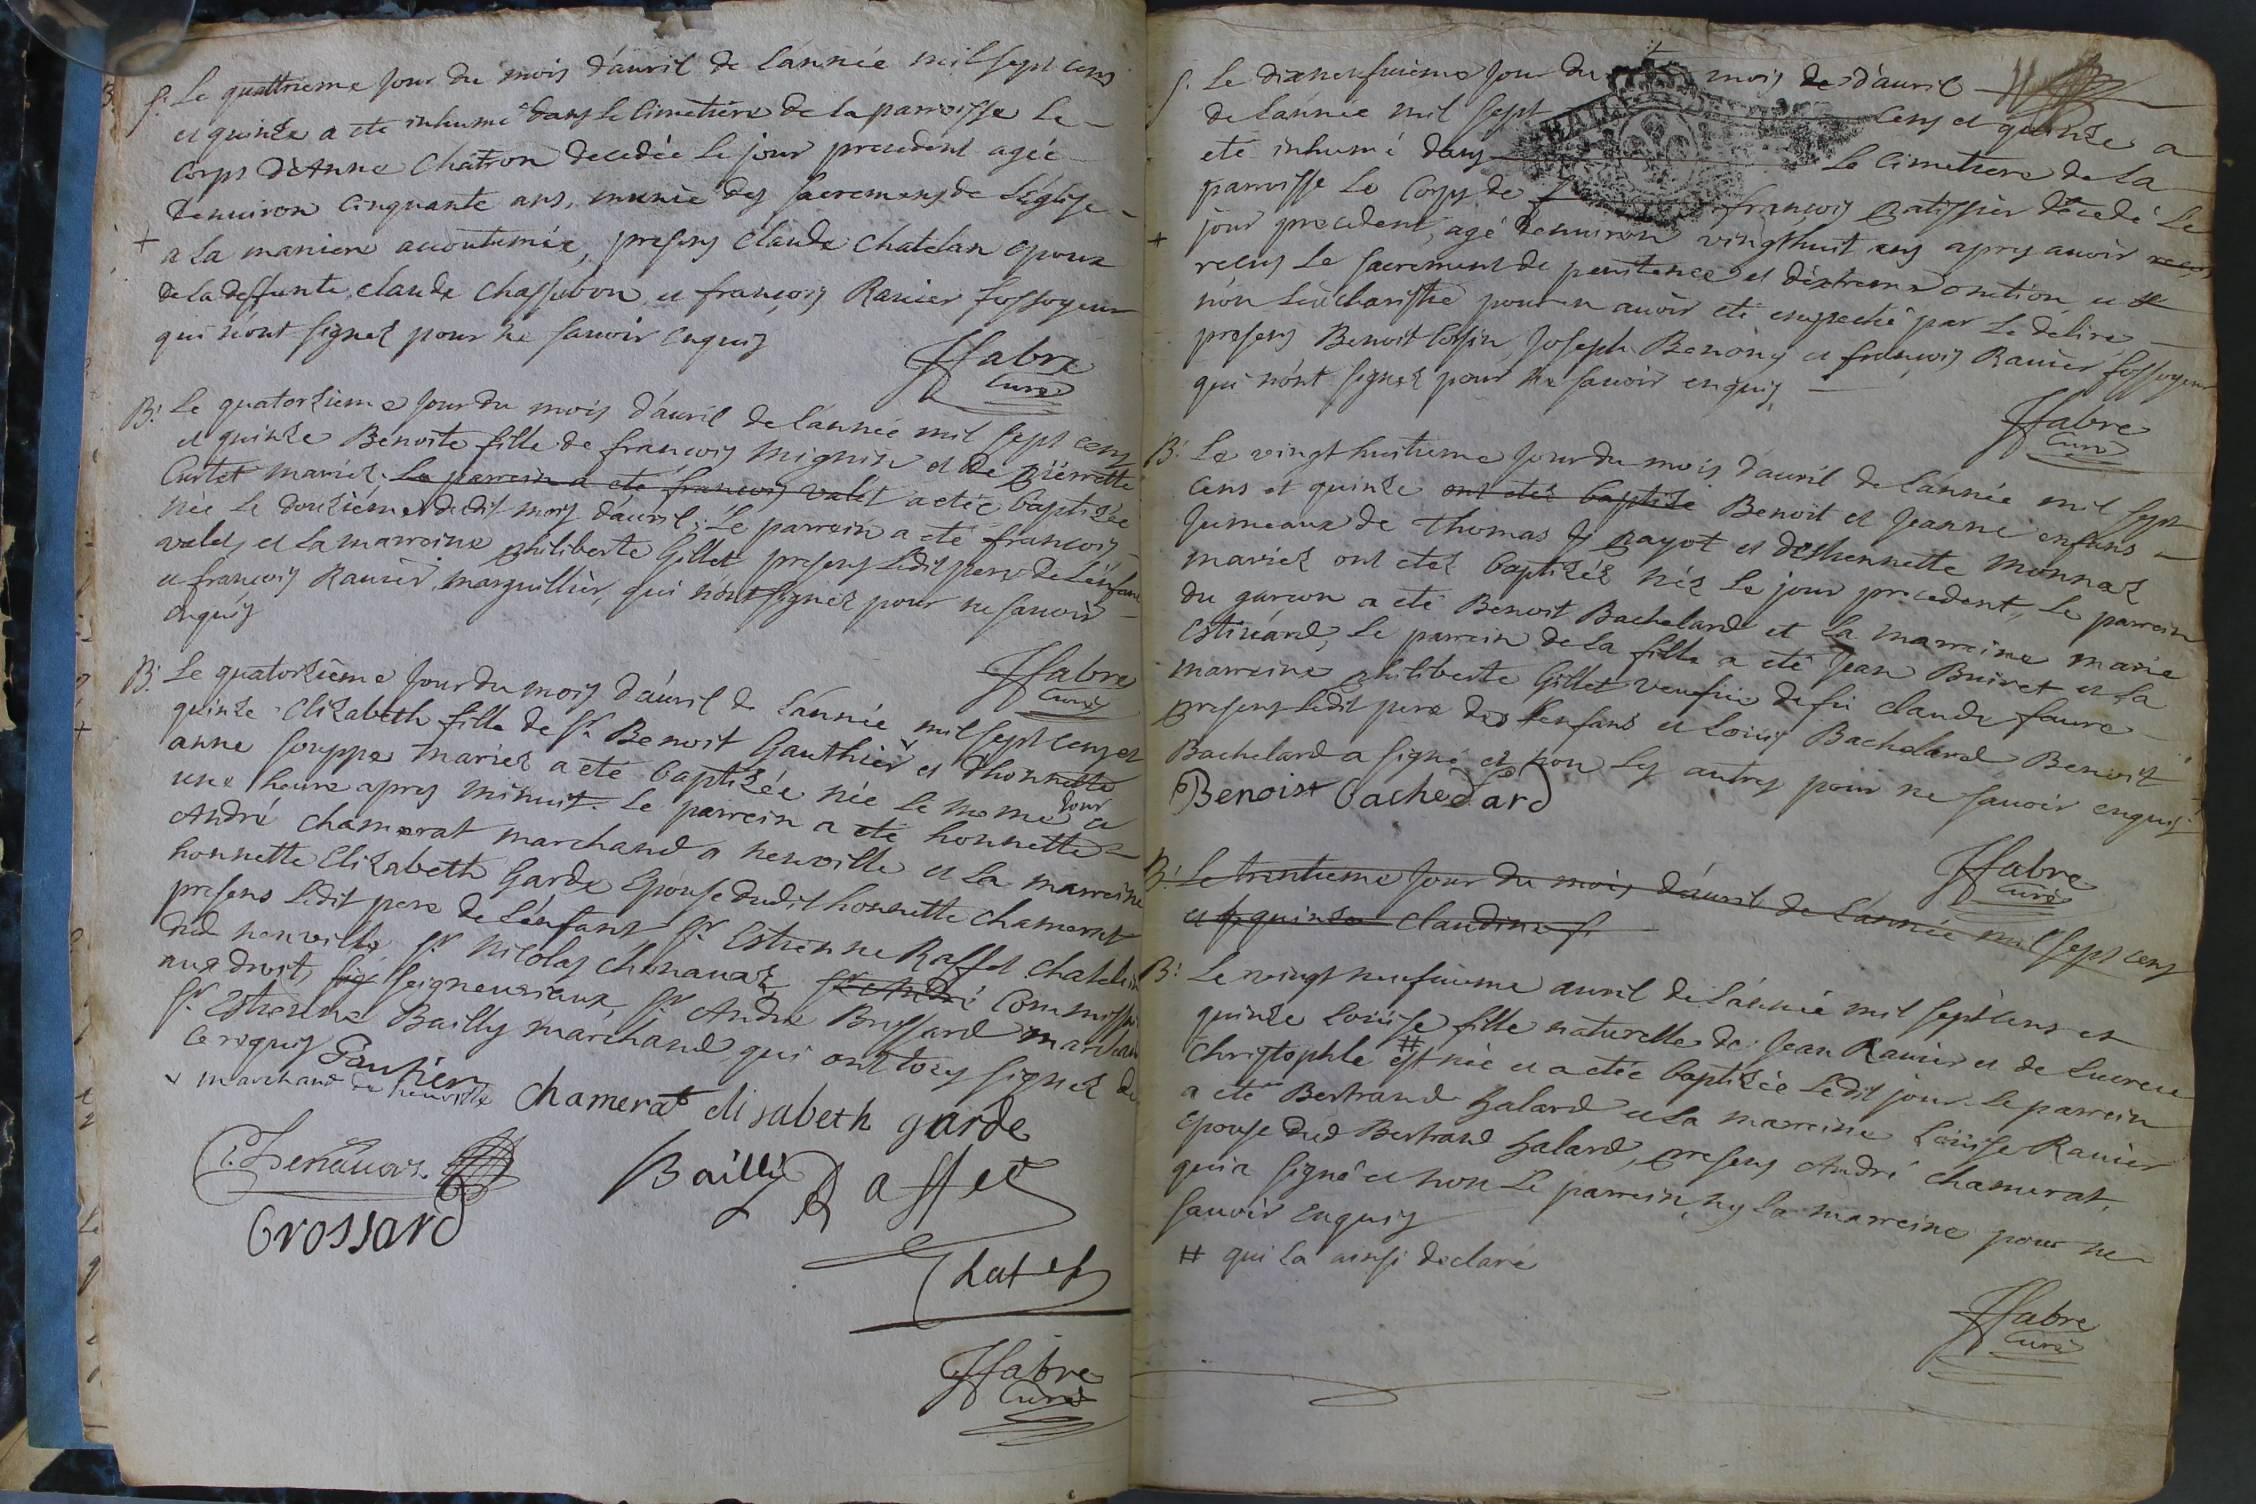 S. Le quattrieme Jour du mois d'auril de l'année mil sept cens
et quinze a eté inhumé dans le Cimetiere de la parroisse Le
Corps d'Anne Chatron decedée le jour precedent agée
denuiron cinquante ans, munie des sacremens de L'église
+ a la maniere accoutumée, presens Claude Chatelan epoux
de la deffunte, claude Chassubon et françois Rauier fossoyeur
qui n'ont signez pour ne sauoir enquis
JFabre
Curé
B. Le quatorzieme Jour du mois d'auril de l'année mil sept cens
et quinze Benoite fille de françois Mignin et de Pierrette
Curtet mariez. Le parrein a eté françois valet a eteé baptizée
née le douzieme dudit mois dauril, Le parrein a eté françois
valet et la marreine philiberte Gillet presens Ledit pere de L'enfant
et françois Rauier, marguillier, qui n'ont signez pour ne sauoir
enquis
JFabre
Curé
B. Le quatorzieme Jour du mois d'auril de l'année mil sept cens et
quinze Elizabeth fille de Sr. Benoit Gauthier v et dhonnette
anne Souppe mariez a eté baptizée née Le meme jour a
une heure apres minuit. Le parrein a eté honnette
André Chamerat marchand a neuville et la marreine
honnette Elizabeth Garde Epouse dudit honnette Chamerat
presens Ledit pere de L'enfant Sr. Estienne Raffet Chatelain
dud neuville, Sr. Nicolas Chenauaz Sr André Commissaire
aux droit seigneuriaux, Sr. André Brossard marchand
Sr. Estienne Bailly marchand qui ont tous signez de
ce requis Gautier
v marchand de neuville Chamerat elisabeth garde
C. Henauas.
Bailly Raffet
brossard
Chatel
JFabre
Curé
S. Le dixneufuieme Jour du mois de d'auril
de l'année mil sept cens et quinze a
eté inhumé dans Le Cimetiere de La
parroisse Le Corps de françois patissier décedé Le
+ jour precedent, agé denuiron vingthuit ans apres auoir reçus
recus Le sacrement de penitence et d'extreme onction et
non L'eucharistie pour en auoir eté empeché par Le delire,
presens Benoit Cosin, Joseph Benony et françois Rauier fossoyeur
qui n'ont signez pour ne sauoir enquis,
JFabre
Curé
B. Le vingt huitieme Jour du mois d'auril de L'année mil sept
cens et quinze ont eté baptizé Benoit et Jeanne enfans
Jumeaux de Thomas payot et d'esthennette Monnaz
mariez ont etez baptizés nés Le jour precedent, Le parrein
du garcon a eté Benoit Bachelard et La marreine marie
Estinard, Le parrein de la fille a eté Jean Buiret et La
marreine philiberte Gillet veufue de feu claude faure
presens Ledit pere des enfans et Loüis Bachelard Benoit
Bachelard a signé et non Les autres pour ne sauoir enquis.
Benoist bachelard
JFabre
Curé
B. Le trentieme Jour du mois d'auril de L'année mil sept cens
et quinze Claudine f
B. Le vingt neufuieme auril de L'année mil sept cens et
quinze Loüise fille naturelle de Jean Rauier et de Lucrece
Christophle # est née et a eteé baptizée Ledit jour. Le parrein
a eté Bertrand Galard et La marreine Loüise Rauier
epouse dud Bertrand Galard, presens André Chamerat,
qui a signé et non Le parrein, ny La marreine pour ne
sauoir enquis
# qui La ainsi declaré
JFabre
Curé